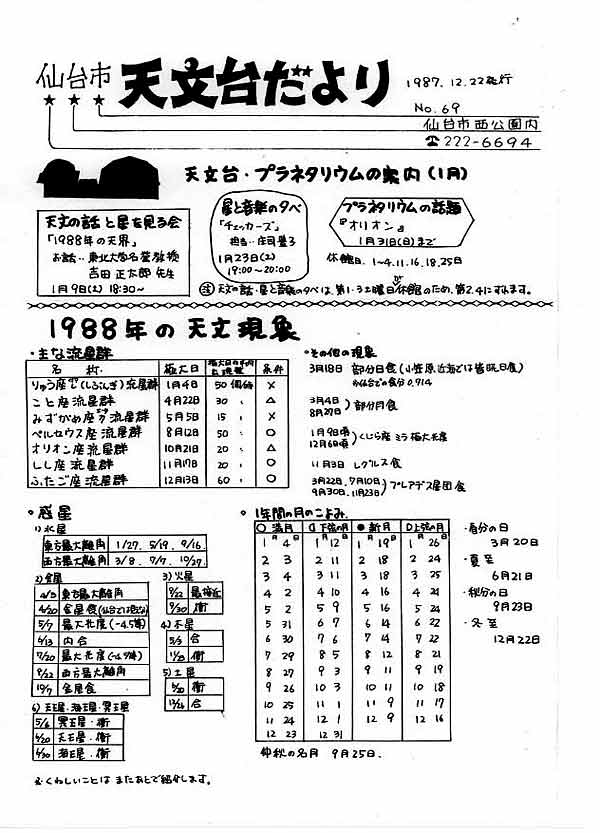 仙台市 天文台だより
1987.12.22発行
No.69
仙台市西公園内
☎222-6694
天文台・プラネタリウムの案内(1月)
天文の話と星を見る会
「1988年の天界」
お話‥東北大学名誉教授
吉田正太郎 先生
1月9日(土) 18:30〜
星と音楽の夕べ
「チェッカーズ」
1月23日(土)
19:00〜20:00
プラネタリウムの話題
『オリオン』
1月31日(日)まで
休館日. 1〜4.11.16.18.25日
1988年の天文現象
・主な流星群
名称 極大日 条件
りゅう座ι(しぶんぎ)流星群 1月4日 50 個 ×
こと座流星群 4月22日 30 〃 △
みずがめ座η流星群 5月5日 15 〃 ×
ペルセウス座流星群 8月12日 50 〃 ○
オリオン座流星群 10月21日 20 〃 △
しし座流星群 11月17日 20 〃 ○
ふたご座流星群 12月13日 60 〃 ○
・その他の現象
3月18日 部分日食(小笠原近海では皆既日食)
仙台での食分0.914
3月4日
8月27日 )部分月食
1月9日頃
12月6日頃 )くじら座 ミラ極大光度
11月3日 レグルス食
3月22日, 7月10日
9月30日, 11月23日 )プレアデス星団食
・惑星
1)水星
東方最大離角 1/27, 5/19, 9/16.
西方最大離角 3/8, 7/7, 10/27
2)金星
4/3 東方最大離角
5/7 最大光度(-4.5等)
6/13 内合
7/20 最大光度(-4.5等)
8/22 西方最大離角
金星食
3)火星
9/22 最接近
9/30 衝
4)木星
5/3 合
11/23 衝
5)土星
6/20 衝
12/26 合
6) 天王星・海王星・冥王星
5/6 冥王星・衝
6/20 天王星・衝
6/30 海王星・衝
・1年間の月のこよみ.
○満月 下弦の月 ●新月 上弦の月
1月4日 1月12日 1月19日 1月26日
2 3 2 11 2 18 2 24
3 4 3 11 3 18 3 25
4 2 4 10 4 16 4 24
5 2 5 9 5 16 5 24
5 31 6 7 6 14 6 22
6 30 7 6 7 14 7 22
7 29 8 5 8 12 8 21
8 27 9 3 9 11 9 19
9 26 10 3 10 11 10 18
10 25 11 1 11 9 11 17
11 24 12 1 12 9 12 16
12 23 12 31
仲秋の名月 9月25日.
・春分の日
3月20日
・夏至
6月21日
・秋分の日
9月23日
・冬至
12月22日
※くわしいことは またあとで紹介します。